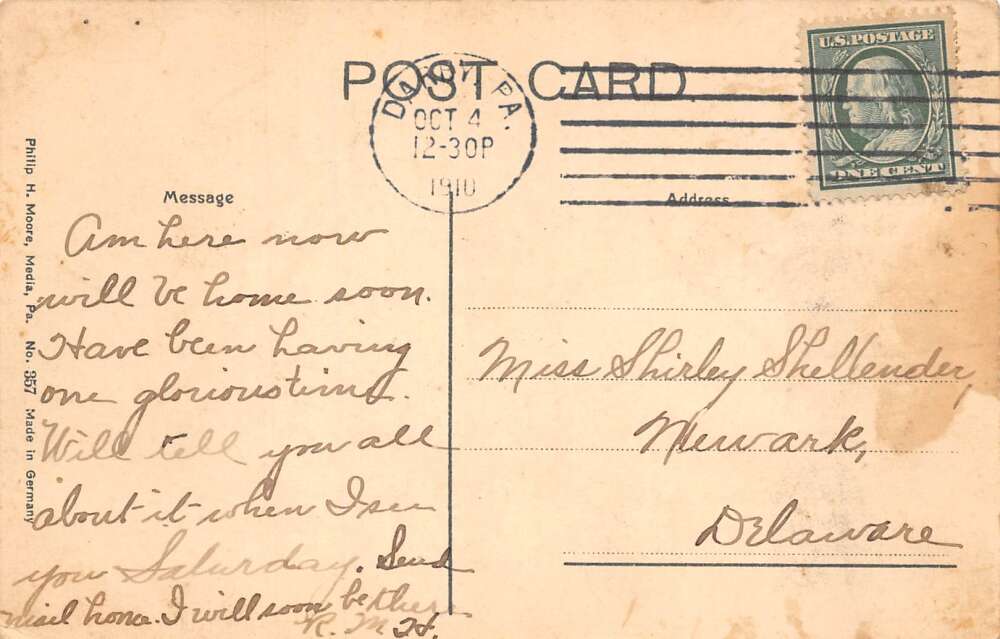 POST CARD
DARBY, PA.
OCT 4
12-30P
1910
U.S. POSTAGE
ONE CENT
Message
Address
Am here now
will be home soon.
Have been having
one glorious time.
Will tell you all
about it when I see
you Saturday. Send
mail home. I will soon be there
R. M. H.
Miss Shirley Shellender,
Newark,
Delaware
Philip H. Moore, Media, Pa. No. 357 Made in Germany